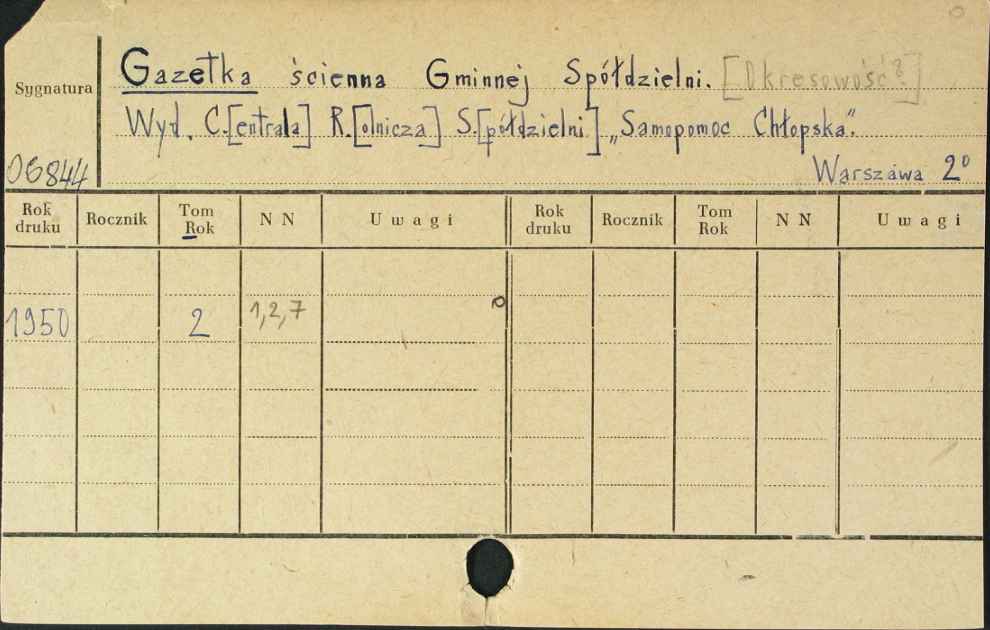 Gazetka ścienna Gminnej Spółdzielni. [Okresowość?]
Sygnatura
Wyd. C.[entrala] R.[olnicza] S.[półdzielni] „Samopomoc Chłopska".
06844
Warszawa 2°
Rok druku Rocznik Tom Rok N N Uwagi Rok druku Rocznik Tom Rok N N Uwagi
1950 2 1,2,7